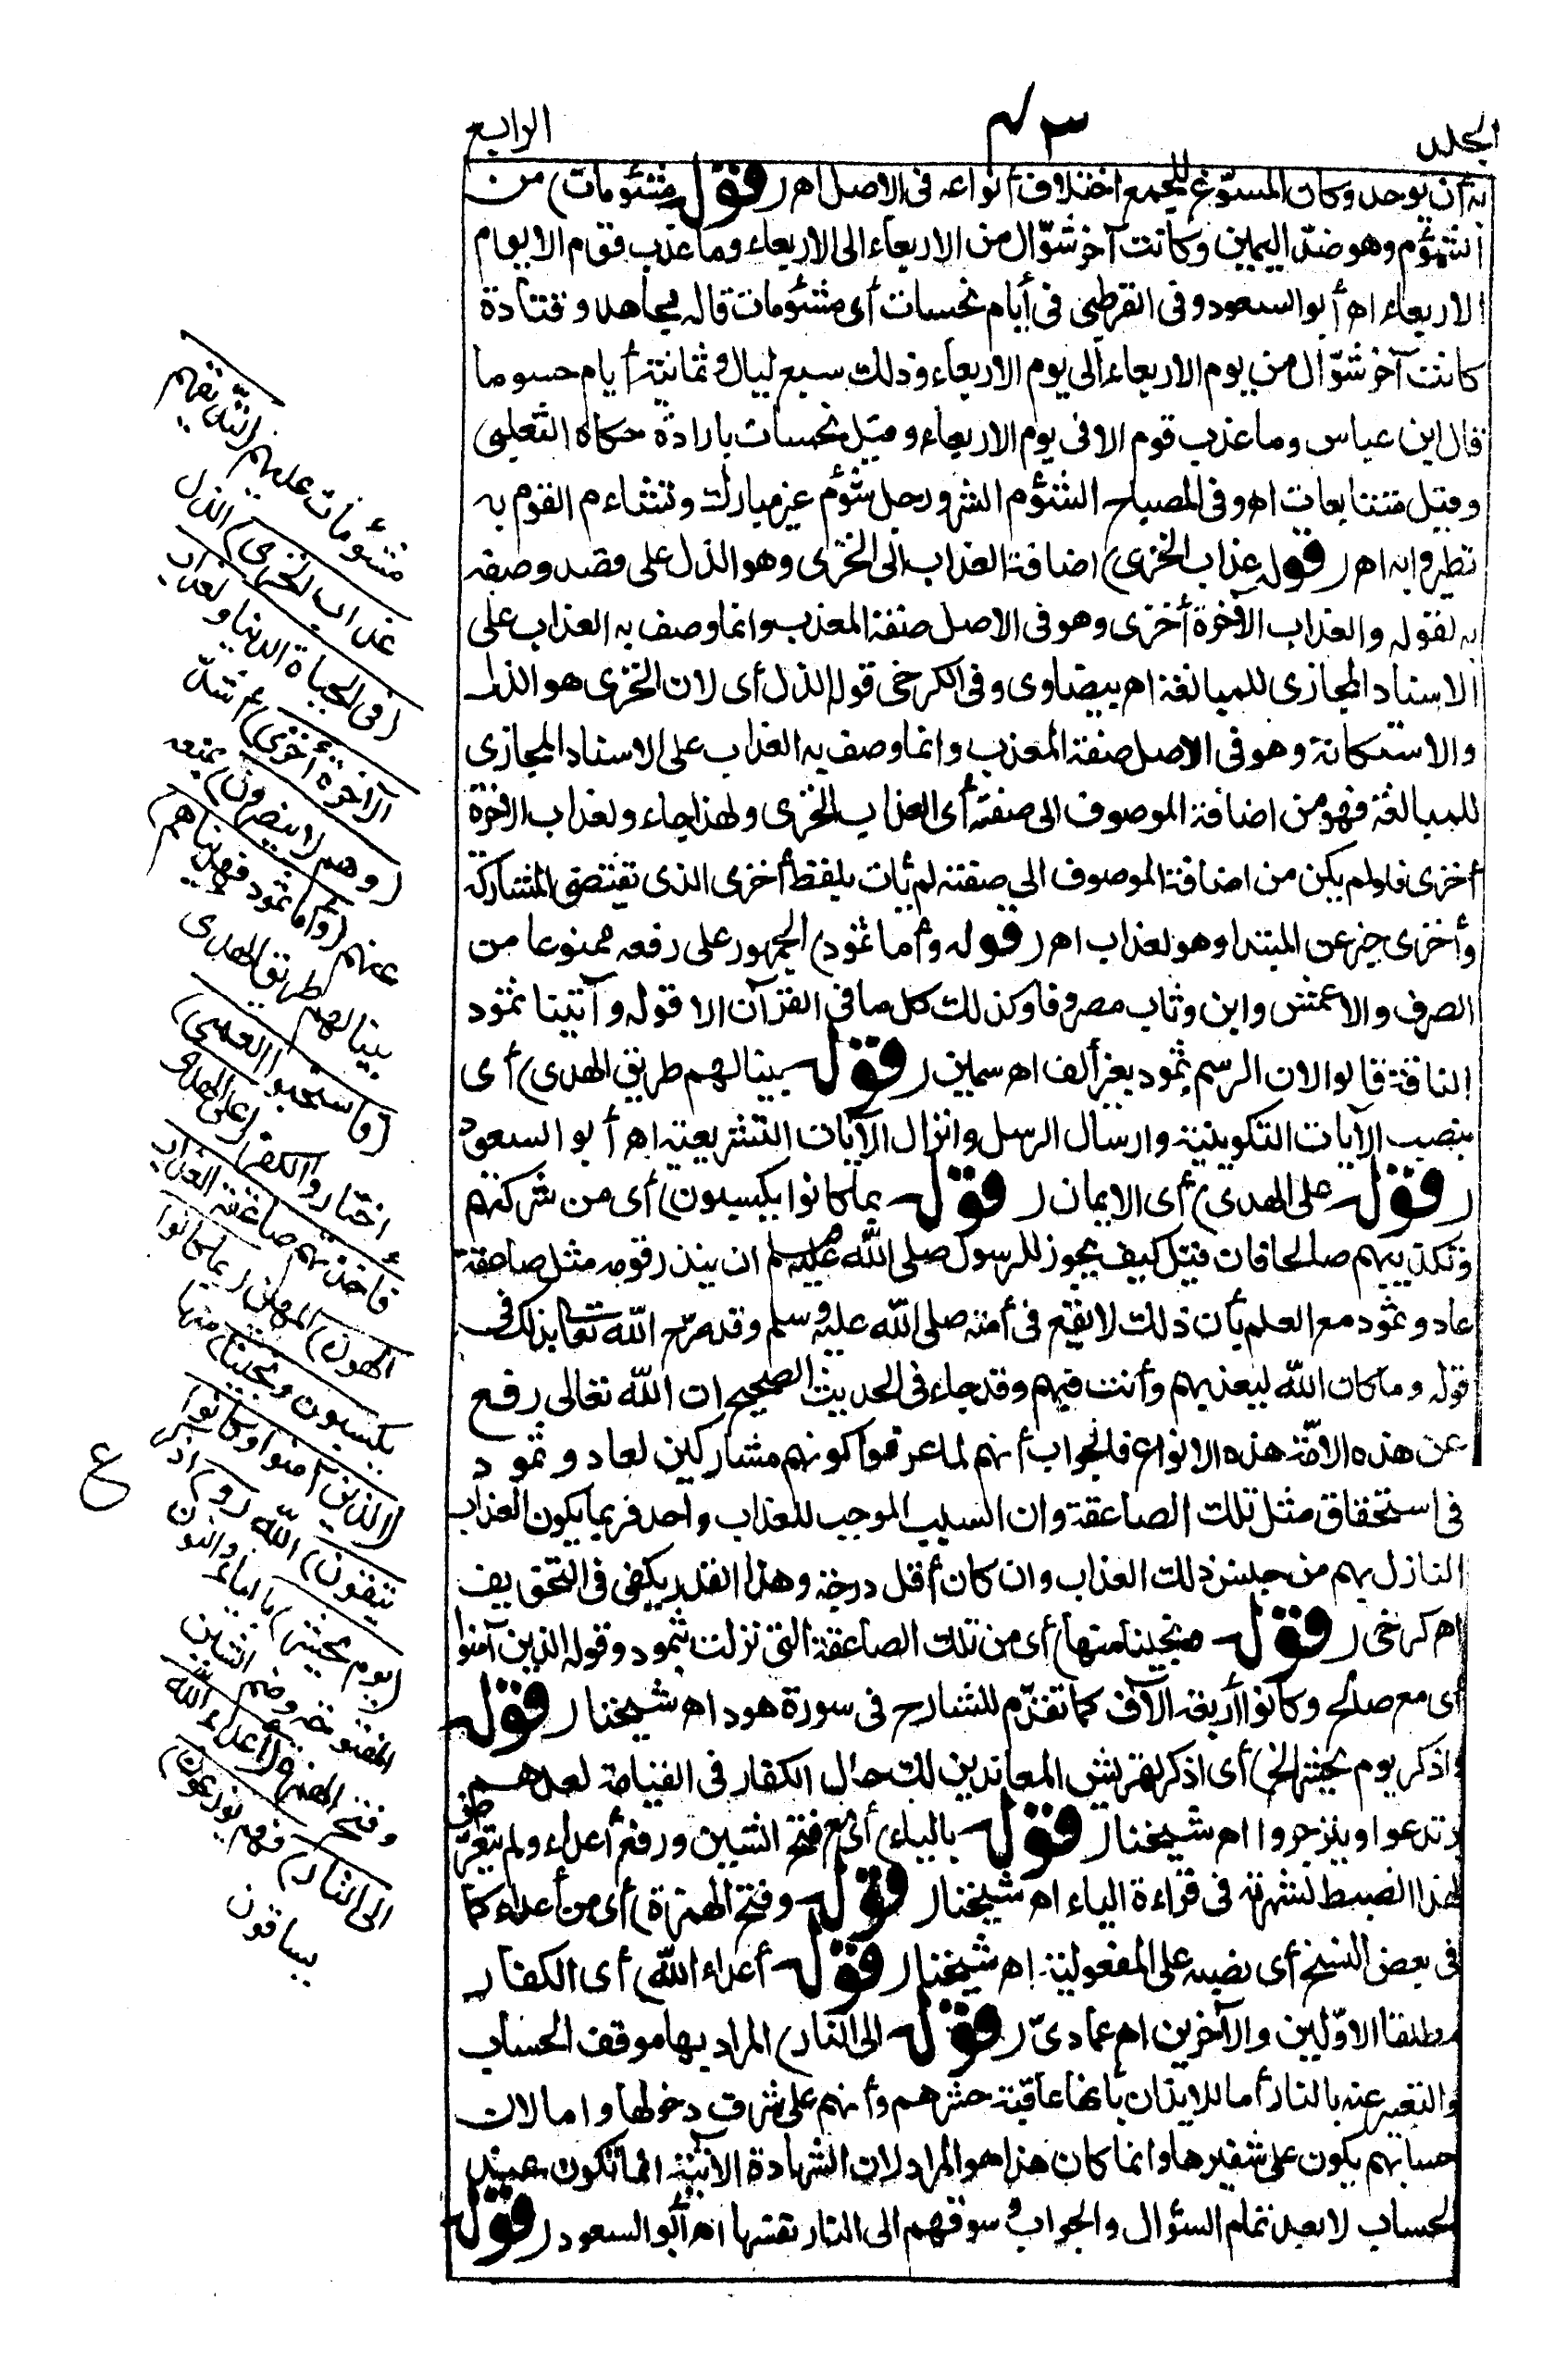 المجلد
٤٣
الرابع
به أن توحد وكان المسوّغ للجمع اختلاف أنواعه في الاصل اهـ (قوله مشئومات) من
الشؤم وهو ضدّ اليمين وكانت آخر شوّال من الاربعاء الى الاربعاء وما عذب قوم الا يوم
الاربعاء اهـ أبو السعود وفى القرطبى فى أيام نحسات أى مشئومات قاله مجاهد وقتادة
كانت آخر شوّال من يوم الاربعاء الى يوم الاربعاء وذلك سبع ليال وثمانية أيام حسوما
قال ابن عباس وما عذب قوم الا فى يوم الاربعاء وقيل نحسات باردة حكاه الثعلبى
وقيل متتابعات اهـ وفى المصباح الشؤم الشر ورجل شؤم غير مبارك وتشاءم القوم به
تطيروا به اهـ (قوله عذاب الخزى) اضافة العذاب الى الخزى وهو الذل على قصد وصفه
به لقوله والعذاب الآخرة أخزى وهو فى الاصل صفة المعذب وانما وصف به العذاب على
الاسناد المجازى للمبالغة اهـ بيضاوى وفى الكرخى قوله الذل أى لان الخزى هو الذل
والاستكانة وهو فى الاصل صفة المعذب وانما وصف به العذاب على الاسناد المجازى
للمبالغة فهو من اضافة الموصوف الى صفته أى العذاب الخزى ولهذا جاء ولعذاب الآخرة
أخزى فلو لم يكن من اضافة الموصوف الى صفته لم يأت بلفظ أخزى الذى تقتضى المشاركة
وأخزى خبر عن المبتدا وهو لعذاب اهـ (قوله وأما ثمود) الجمهور على رفعه ممنوعا من
الصرف والاعمش وابن وثاب مصروفا وكذلك كل ما فى القرآن الا قوله وآتينا ثمود
الناقة قالوا لان الرسم ثمود بغير ألف اهـ سمين (قوله بينا لهم طريق الهدى) أى
بنصب الآيات التكوينية وارسال الرسل وانزال الآيات التشريعية اهـ أبو السعود
(قوله على الهدى) أى الايمان (قوله بما كانوا يكسبون) أى من شركهم
وتكذيبهم صالحا فان قيل كيف يجوز للرسول صلى الله عليه وسلم ان ينذر قومه مثل صاعقة
عاد وثمود مع العلم بأن ذلك لا يقع فى أمته صلى الله عليه وسلم وقد صرّح الله تعا بذلك فى
قوله وما كان الله ليعذبهم وأنت فيهم وقد جاء فى الحديث الصحيح ان الله تعالى رفع
عن هذه الامّة هذه الانواع فالجواب أنهم لما عرفوا كونهم مشاركين لعاد وثمود
فى استحقاق مثل تلك الصاعقة وان السبب الموجب للعذاب واحد فربما يكون العذاب
النازل بهم من جنس ذلك العذاب وان كان أقل درجة وهذا القدر يكفى فى التخويف
اهـ كرخى (قوله ونجينا منها) أى من تلك الصاعقة التى نزلت بثمود وقوله الذين آمنوا
أى مع صالح وكانوا أربعة آلاف كما تقدّم للشارح فى سورة هود اهـ شيخنا (قوله
واذكر يوم يحشر الخ) أى اذكر لقريش المعاندين لك حال الكفار فى القيامة لعلهم
يرتدعوا وينزجروا اهـ شيخنا (قوله بالياء) أى مع فتح الشين ورفع أعداء ولم يتعرّض
لهذا الضبط لشهرته فى قراءة الياء اهـ شيخنا (قوله وفتح الهمزة) أى من أعداء كما
فى بعض النسخ أى نصبه على المفعولية اهـ شيخنا (قوله أعداء الله) أى الكفار
مطلقا الاوّلين والآخرين اهـ عمادىّ (قوله الى النار) المراد بها موقف الحساب
والتعبير عنه بالنار أما للايذان بأنها عاقبة حشرهم وأنهم على شرف دخولها واما لان
حسابهم يكون على شفيرها وانما كان هذا هو المراد لان الشهادة الآتية انما تكون عند
الحساب لا بعد تمام السؤال والجواب وسوقهم الى النار نفسها اهـ أبو السعود (قوله
مشؤمات عليهم (لنذيقهم
عذاب الخزى) الذل
(فى الحياة الدنيا ولعذاب
الآخرة أخزى) أشدّ
(وهم لا ينصرون) بمنعه
عنهم (وأما ثمود فهديناهم)
بينا لهم طريق الهدى
(فاستحبوا العمى)
اختاروا الكفر (على الهدى
فأخذتهم صاعقة العذاب
الهون) المهين (بما كانوا
يكسبون ونجينا) منها
(الذين آمنوا وكانوا
يتقون) الله (و) اذكر
(يوم يحشر) بالياء والنون
المفتوحة وضم الشين
وفتح الهمزة (أعداء الله
الى النار) فهم يوزعون)
يساقون
ع